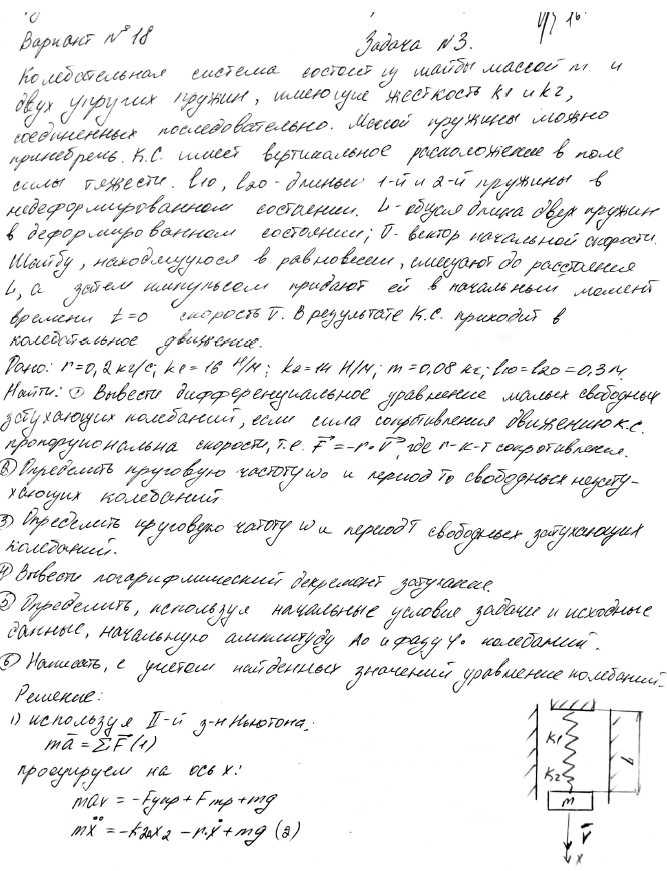 Вариант №18
Задача №3.
Колебательная система состоит из шайбы массой m и
двух упругих пружин, имеющие жесткость k1 и k2,
соединенных последовательно. Массой пружины можно
принебречь. К.С. имеет вертикальное расположение в поле
силы тяжести. l10, l20 - длины 1-й и 2-й пружины в
недеформированном состоянии. L - общая длина двух пружин
в деформированном состоянии; V - вектор начальной скорости.
Шайбу, находящуюся в равновесии, смещают до расстояния
L, а затем импульсом придают ей в начальный момент
времени t=0 скорость V. В результате К.С. приходит в
колебательное движение.
Дано: r=0,2 кг/с; k1=16 Н/м; k2=14 Н/м; m=0,08 кг; l10=l20=0,3 м.
Найти: ① Вывести дифференциальное уравнение малых свободных
затухающих колебаний, если сила сопротивления движению к.с.
пропорциональна скорости, т.е. F=-r·V, где r-к-т сопротивления.
② Определить круговую частоту ω0 и период T0 свободных незату-
хающих колебаний.
③ Определить круговую чатоту ω и период T свободных затухающих
колебаний.
④ Вывести логарифмический декремент затухания.
⑤ Определить, используя начальные условия задачи и исходные
данные, начальную амплитуду A0 и фазу φ0 колебаний.
⑥ Написать, с учетом найденных значений уравнение колебаний.
Решение:
1) используя II-й з-н Ньютона:
mā = ΣF̄ (1)
проецируем на ось x:
max = -Fупр + Fтр + mg
mẍ = -k20x2 - r·ẋ + mg (2)
k1
k2
l
m
V̄
x